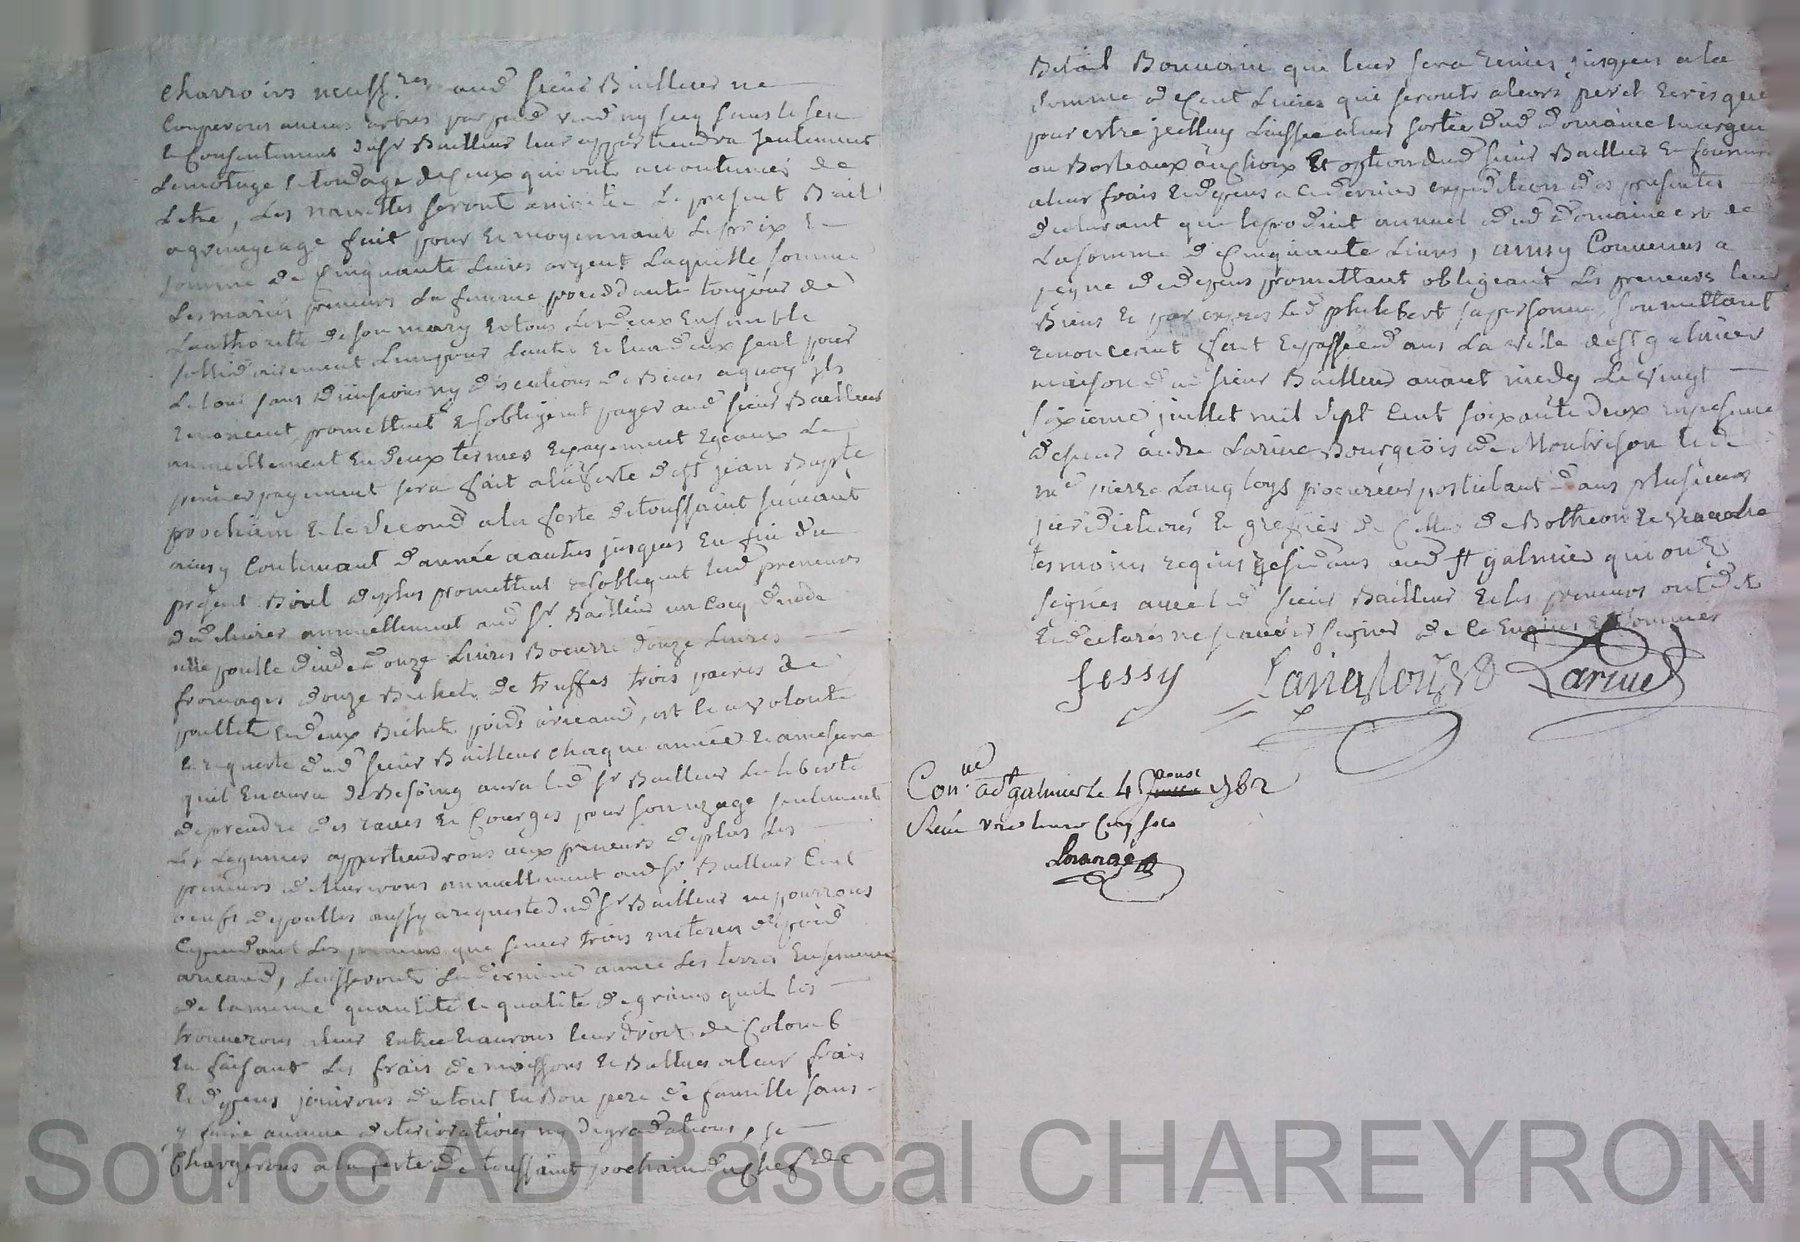 charrois necess.res aud sieur Bailleur ne
Couperont aucuns arbres par pied verd ny secq sans le seu
le Consentement dud sr Bailleur leur appartiendra seulement
Lemotage & tondage de Ceux qui ont accoutumés de
Letre, Les navettes seront
agrangeage fait pour & moyennant Leprix &
somme de Cinquante Livres argent Laquelle somme
Les mariés preneurs La femme procedante toujour de
Lauthorité de son mary & tous Lesdeux Ensemble
sollidairement Lun pour Lautre & lun deux seul pour
Letout sans Divisions ny discutions de Biens aquoy jls
renoncent promettent & sobligent payer aud sieur Bailleur
annuellement En deux termes & payement Egeaux Le
premier payement sera fait alafeste de st jean Bapte
prochain & le Second ala feste de toussaint suivant
ainsy Continuant dannée a autres jusques En fin du
présent Bail deplus promettent & sobligent lesd preneurs
de delivrer annuellement aud sr. Bailleur un Coq dinde
une poulle dinde Douze Livres Beurre Douze Livres
fromages douze Bichets de truffes trois paires de
poullets & deux Bichets poids a la volonté
& requeste dud sieur Bailleur chaque année & amesure
quil En aura de Besoing aura led sr Bailleur La liberté
deprendre des raves & Courges pour son uzage seulement
Les Legumes appartiendrons aux preneurs deplus Les
preneurs delivrerons annuellement aud sr Bailleur Cent
oeufs depoulles aussy arequeste dud sr Bailleur ne pourrons
Cependant Les preneurs que semer trois
Laisseront La derniere année Les terres Ensemencé
de lamême quantité & qualité de grains quil les
trouverons aleur Entrée & aurons leur droit de Colomb
En faisant Les frais de moissons & Battues aleur frais
& depens jouirons dutout En Bon pere de famille sans
y faire aucune deteriorations ny degradations, se
Chargerons ala feste de toussaint prochain du Chef de
Betail Bouvain qui leur sera remis jusques a la
somme de Cent Livres qui seront aleurs peril & risque
pour estre jcelluy Laissé aleur sortie dud Domaine
au choix Et option dud sieur Bailleur & fournir
aleur frais & depens a Ce dernier expedition des presentes
declarant que leproduit annuel dud Domaine est de
La somme de Cinquante Livres, ainsy Convenu a
peyne de depens promettant obligeant Les preneurs leur
Biens & par exprès Led philibert sa personne soumettant
renoncent fait & passé dans La ville de st galmier
maison dud sieur Bailleur avant midy Le Vingt
sixieme juillet mil sept Cent soixante deux en presence
de sieur andré Larive Bourgeois de Montbrison & de
me pierre Langloys procureur postulant dans plusieurs
jurisdictions & greffier de Celles de Botheon & Veauche
tesmoins requis residans aud st galmier qui ont
signés avec led sieur Bailleur & les preneurs ont dit
& declarés ne sçavoir signer de Ce Enquis & sommés
fessy Langloys Larive
Con.lé a st galmier le 4 aoust 1762
Receu